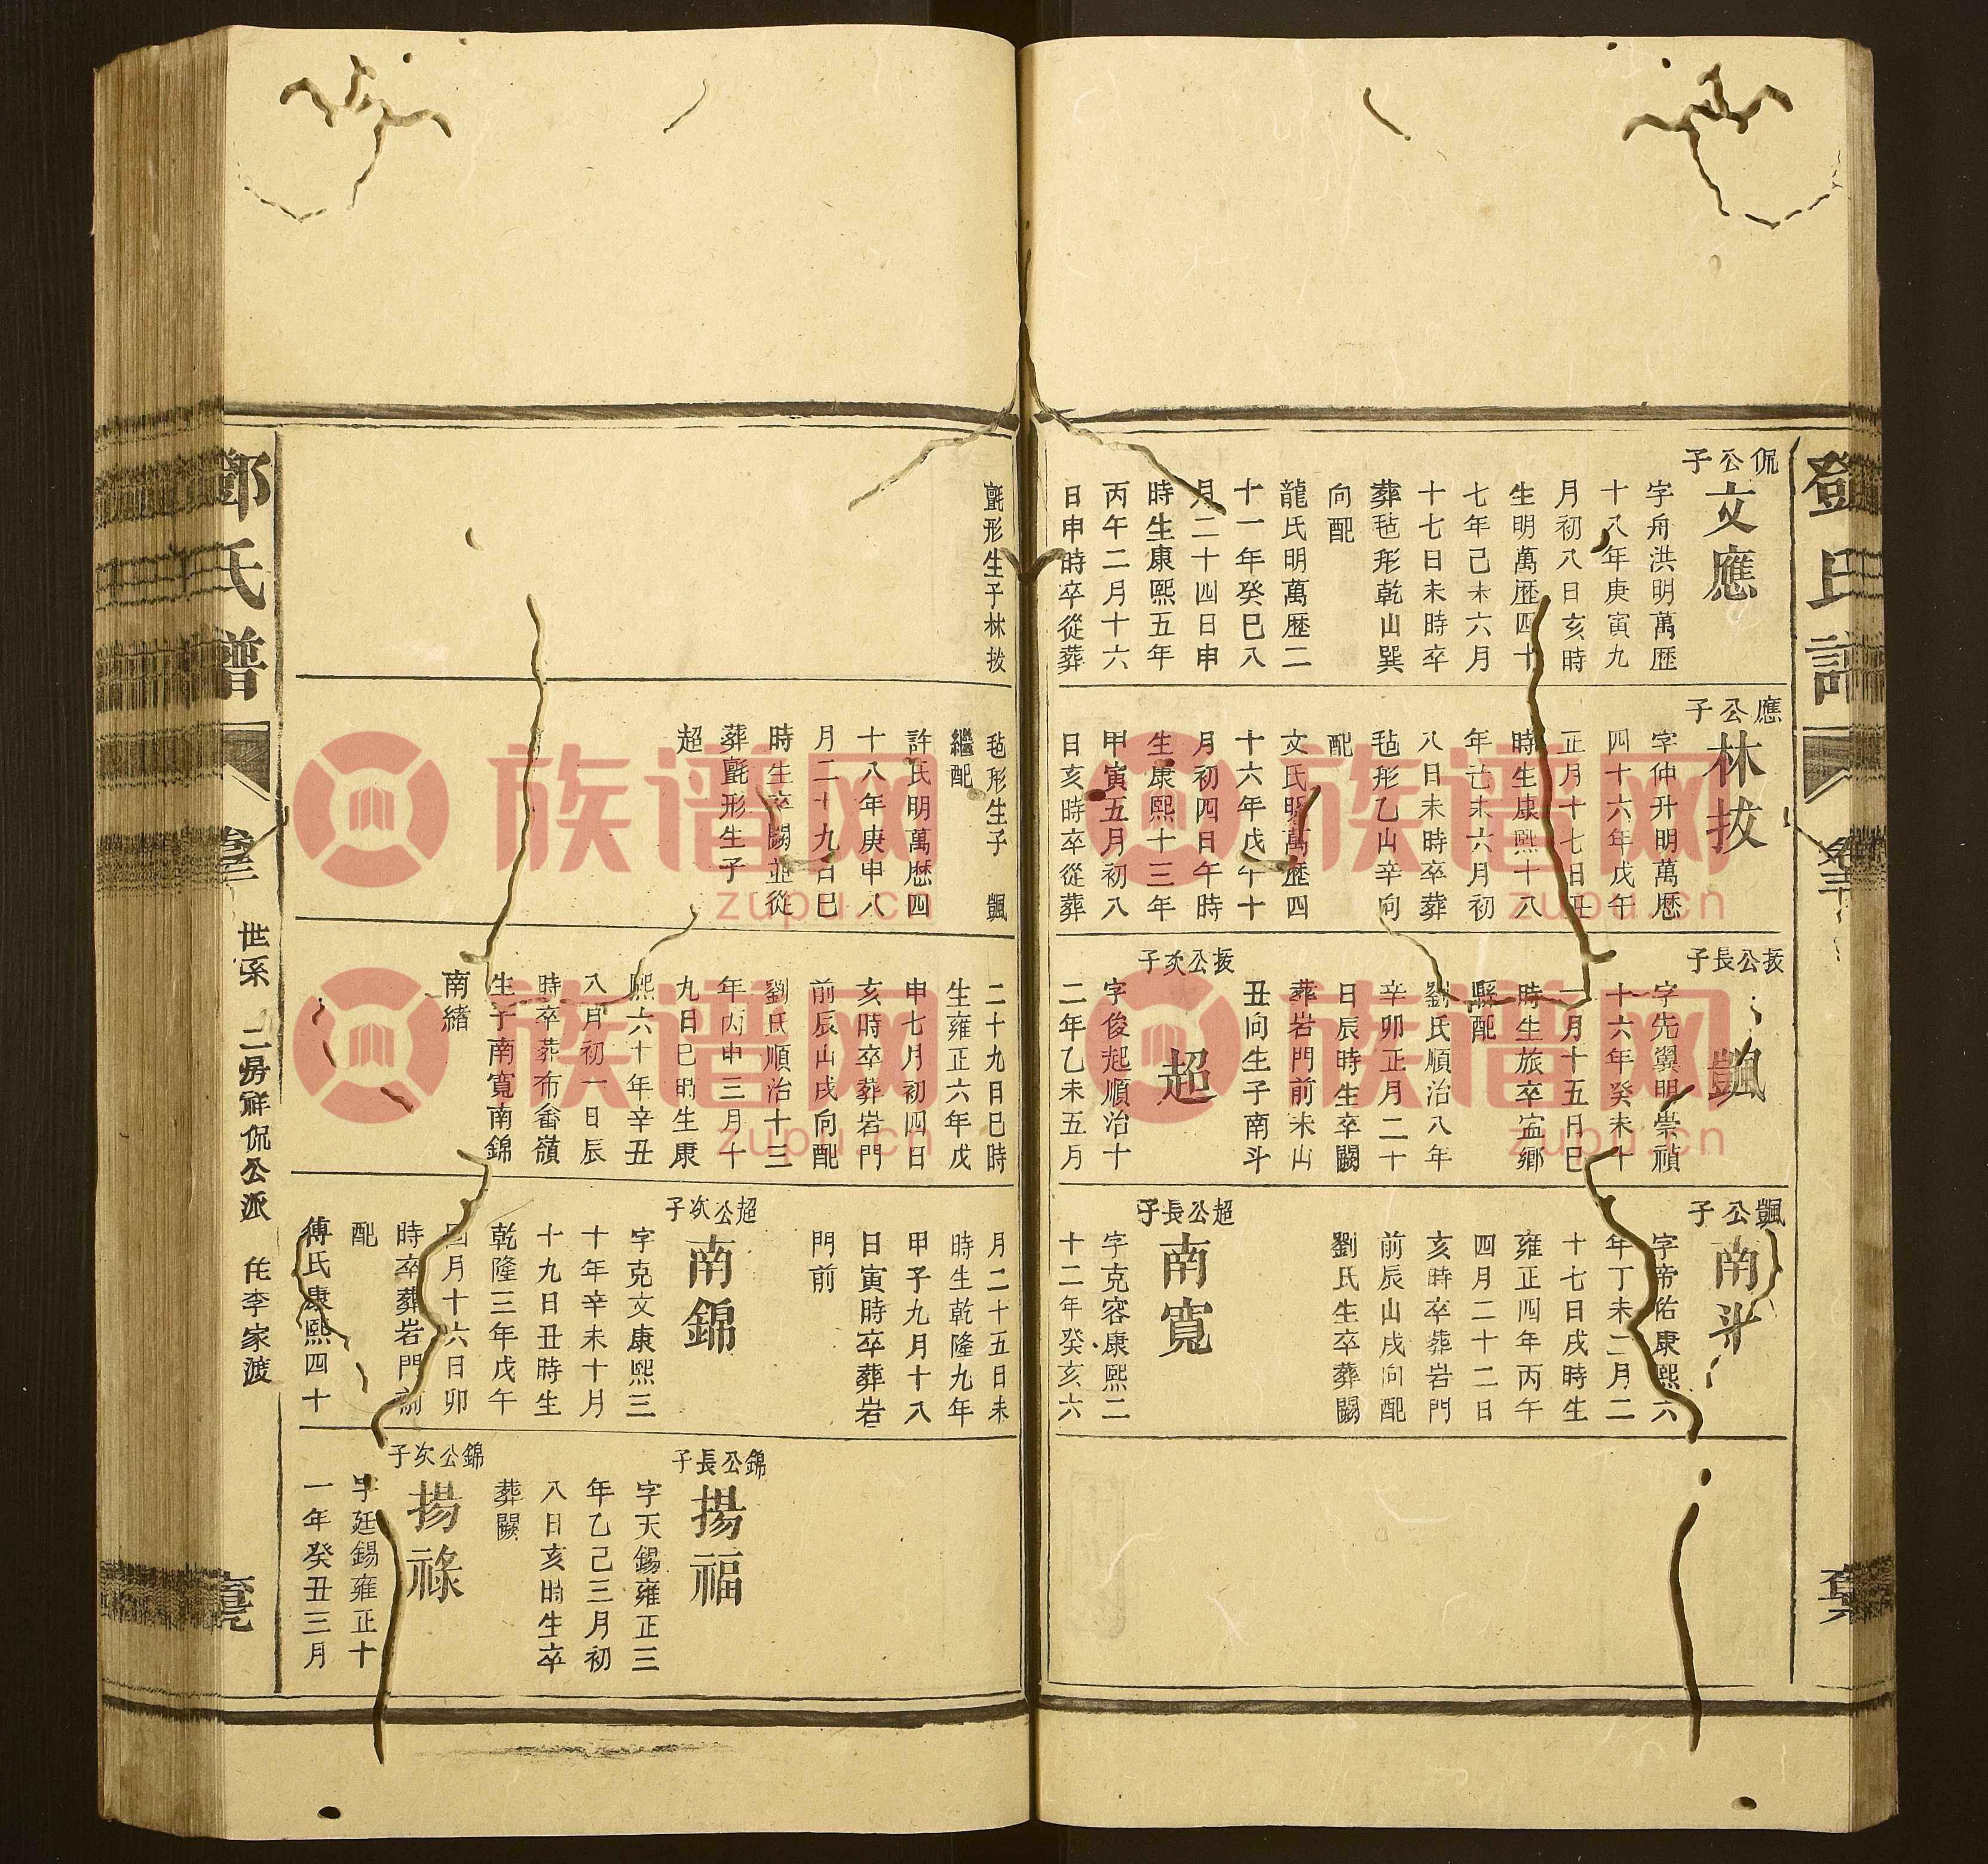 侃公子
文應
字舟洪明萬歷
十八年庚寅九
月初八日亥時
生明萬歷四十
七年己未六月
十七日未時卒
葬毡形乾山巽
向配
龍氏明萬歷二
十一年癸巳八
月二十四日申
時生康熙五年
丙午二月十六
日申時卒從葬
氈形生子林拔
應公子
林拔
字仲升明萬歷
四十六年戊午
正月十七日
時生康熙十八
年己未六月初
八日未時卒葬
毡形乙山辛向
配
文氏明萬歷四
十六年戊午十
月初四日午時
生康熙十三年
甲寅五月初八
日亥時卒從葬
毡形生子 颽
繼配
許氏明萬歷四
十八年庚申八
月二十九日巳
時生卒闕並從
葬氈形生子
超
拔公長子
颽
字先翼明崇禎
十六年癸未十
一月十五日巳
時生旅卒孟鄉
縣配
劉氏順治八年
辛卯正月二十
日辰時生卒闕
葬岩門前未山
丑向生子南斗
拔公次子
超
字俊起順治十
二年乙未五月
二十九日巳時
生雍正六年戊
申七月初四日
亥時卒葬岩門
前辰山戌向配
劉氏順治十三
年丙申三月十
九日巳時生康
熙六十年辛丑
八月初一日辰
時卒葬布畬嶺
生子南寬南錦
南緒
颽公子
南斗
字帝佑康熙六
年丁未二月二
十七日戌時生
雍正四年丙午
四月二十二日
亥時卒葬岩門
前辰山戌向配
劉氏生卒葬闕
超公長子
南寬
字克容康熙二
十二年癸亥六
月二十五日未
時生乾隆九年
甲子九月十八
日寅時卒葬岩
門前
超公次子
南錦
字克文康熙三
十年辛未十月
十九日丑時生
乾隆三年戊午
四月十六日卯
時卒葬岩門前
配
傅氏康熙四十
錦公長子
揚福
字天錫雍正三
年乙己三月初
八日亥時生卒
葬闕
錦公次子
揚祿
字廷錫雍正十
一年癸丑三月
鄧氏譜
卷三
世系 二房祥侃公派 住李家渡
族谱网
zupu.cn
族谱网
zupu.cn
族谱网
zupu.cn
族谱网
zupu.cn